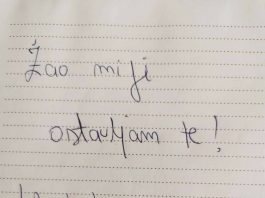 Žao mi ji
ostavljam te!